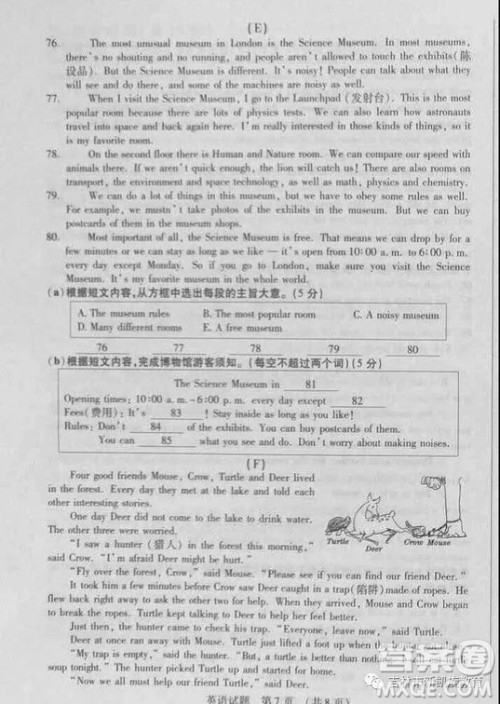 (E)
76. The most unusual museum in London is the Science Museum. In most museums,
there's no shouting and no running, and people aren't allowed to touch the exhibits(陈
设品). But the Science Museum is different. It's noisy! People can talk about what
they will see and do there, and some of the machines are noisy as well.
77. When I visit the Science Museum, I go to the Launchpad (发射台). This is the most
popular room because there are lots of physics tests. We can also learn how astronauts
travel into space and back again here. I'm really interested in those kinds of things, so it
is my favorite room.
78. On the second floor there is Human and Nature room. We can compare our speed with
animals there. If we aren't quick enough, the lion will catch us! There are also rooms on
transport, the environment and space technology, as well as math, physics and chemistry.
79. We can do a lot of things in this museum, but we have to obey some rules as well.
For example, we mustn't take photos of the exhibits in the museum. But we can buy
postcards of them in the museum shops.
80. Most important of all, the Science Museum is free. That means we can drop by for a
few minutes or we can stay as long as we like — it's open from 10:00 a. m. to 6:00 p. m.
every day except Monday. So if you go to London, make sure you visit the Science
Museum. It's my favorite museum in the whole world.
(a)根据短文内容,从方框中选出每段的主旨大意。(5分)
A. The museum rules B. The most popular room C. A noisy museum
D. Many different rooms E. A free museum
76 77 78 79 80
(b)根据短文内容,完成博物馆游客须知。(每空不超过两个词)(5分)
The Science Museum in 81
Opening times: 10:00 a. m. –6:00 p. m. every day except 82
Fees(费用): It's 83 ! Stay inside as long as you like!
Rules: Don't 84 of the exhibits. You can buy postcards of them.
You can 85 what you see and do. Don't worry about making noises.
(F)
Four good friends Mouse, Crow, Turtle and Deer lived
in the forest. Every day they met at the lake and told each
other interesting stories.
One day Deer did not come to the lake to drink water.
The other three were worried.
"I saw a hunter (猎人) in the forest this morning,"
said Crow. "I'm afraid Deer might be hurt."
Turtle Deer Crow Mouse
"Fly over the forest, Crow," said Mouse. "Please see if you can find our friend Deer."
It took him a few minutes before Crow saw Deer caught in a trap(陷阱) made of ropes. He
flew back right away to ask the other two for help. When they arrived, Mouse and Crow began
to break the ropes. Turtle kept talking to Deer to help her feel better.
Just then, the hunter came to check his trap. "Everyone, leave now," said Turtle.
Deer at once ran away with Mouse. Turtle just lifted a foot up when the
"My trap is empty," said the hunter. "But, a turtle is better than nothing
nothing." The hunter picked Turtle up
"Now we all must help our friend Turtle," said Deer.
英语试题 第7页 (共8页)
答案圈
MXQE.COM